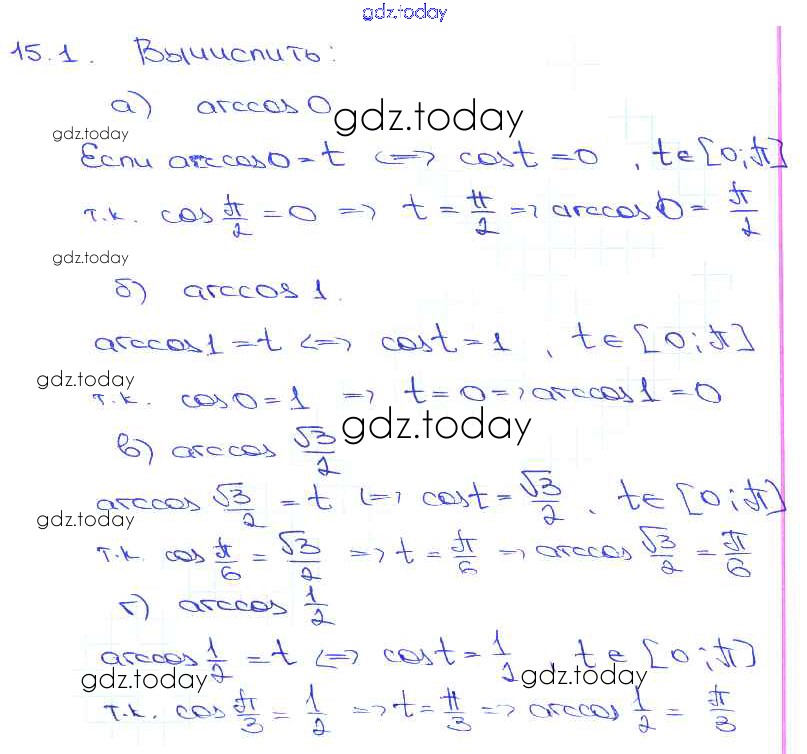 gdz.today
15.1. Вычислить:
а) arccos 0
gdz.today
gdz.today
Если arccos 0 = t <=> cos t = 0, t ∈ [0; π]
т.к. cos π/2 = 0 => t = π/2 => arccos 0 = π/2
gdz.today
б) arccos 1.
arccos 1 = t <=> cos t = 1, t ∈ [0; π]
gdz.today
т.к. cos 0 = 1 => t = 0 => arccos 1 = 0
gdz.today
в) arccos √3/2
arccos √3/2 = t <=> cos t = √3/2, t ∈ [0; π]
gdz.today
т.к. cos π/6 = √3/2 => t = π/6 => arccos √3/2 = π/6
г) arccos 1/2
arccos 1/2 = t <=> cos t = 1/2, t ∈ [0; π]
gdz.today
gdz.today
т.к. cos π/3 = 1/2 => t = π/3 => arccos 1/2 = π/3